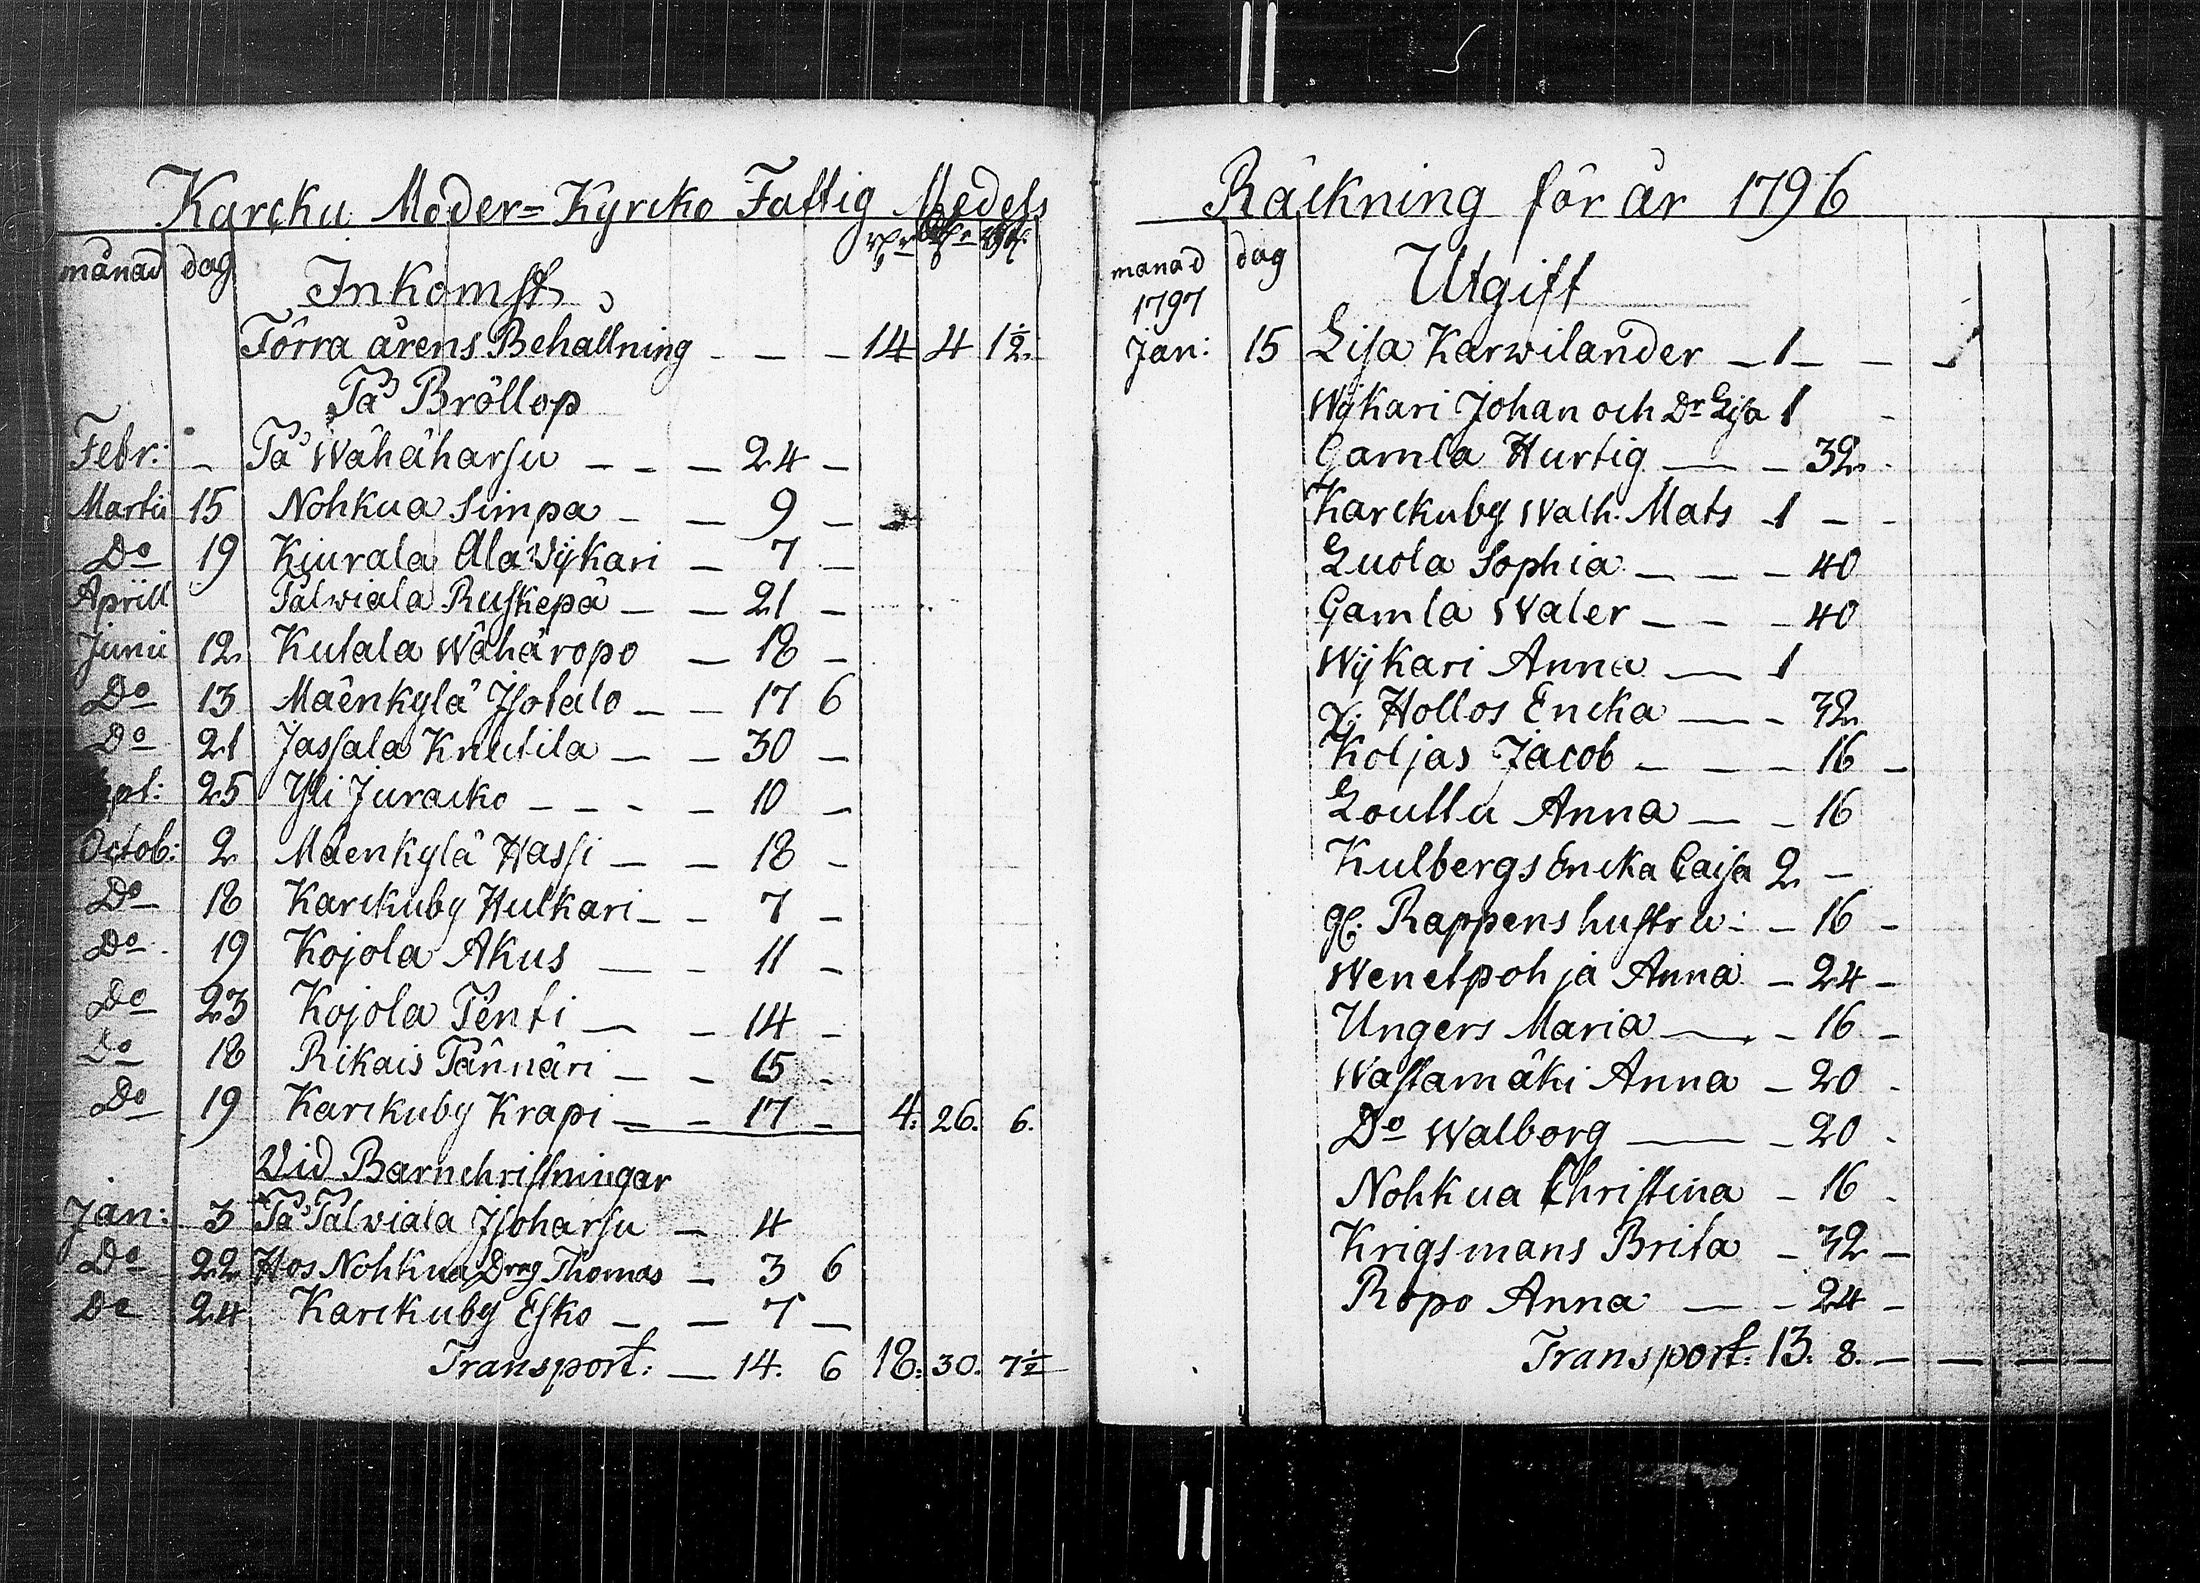 Karcku Moder=Kyrcko Fattig Medels
månad dag
Inkomst
Förra årens Behållning - - - 14 4 1½
På Bröllop
Febr: - På Wähäharju - - - 24 -
Martii 15 Nohkua Simpa - - 9 -
Do 19 Kiurala Ala Wijkari - 7 -
Aprill Talwiala Ruskepä - - 21 -
Junii 12 Kutala Wähäropo - 18 -
Do 13 Mäenkylä Isotalo - - 17 6
Do 21 Jassala Knutila - - 30 -
pt: 25 Yli Juracko - - - - 10 -
Octob: 2 Mäenkylä Hassi - - 18 -
Do 18 Karckuby Hulkari - - 7 -
Do 19 Kojola Akus - - 11 -
Do 23 Kojola Penti - - 14 -
Do 18 Rikais Pännäri - - 15 -
Do 19 Karckuby Krapi - - 17 - 4: 26. 6.
Vid Barnchristningar
Jan: 3 På Talwiala Isoharju - 4
Do 22 Hos Nohkua Drng Thomas - 3 6
Do 24 Karckuby Esko - - 7 -
Transport: - 14. 6 18: 30. 7½
Räckning för år 1796
manad dag
Utgift
1797
Jan: 15 Lisa Karwilander - 1 - -
Wijkari Johan och Dr Lisa 1 -
Gamla Hurtig - - 32 -
Karckuby Walh. Mats - 1 - -
Luola Sophia - - - 40
Gamla Waler - - - 40
Wijkari Anna - 1
Hollos Encka - - 32
Koljas Jacob - - - 16 -
Loullu Anna - - 16
Kulbergs Encka Caisa 2 -
gl: Rappens hustru - - 16 -
Wenetpohja Anna - 24 -
Ungers Maria - - 16 -
Wastamäki Anna - 20 -
Do Walborg - - 20 -
Nohkua Christina - 16 -
Krigsmans Brita - 32 -
Ropo Anna - - 24 -
Transport: 13. 8. - - - -